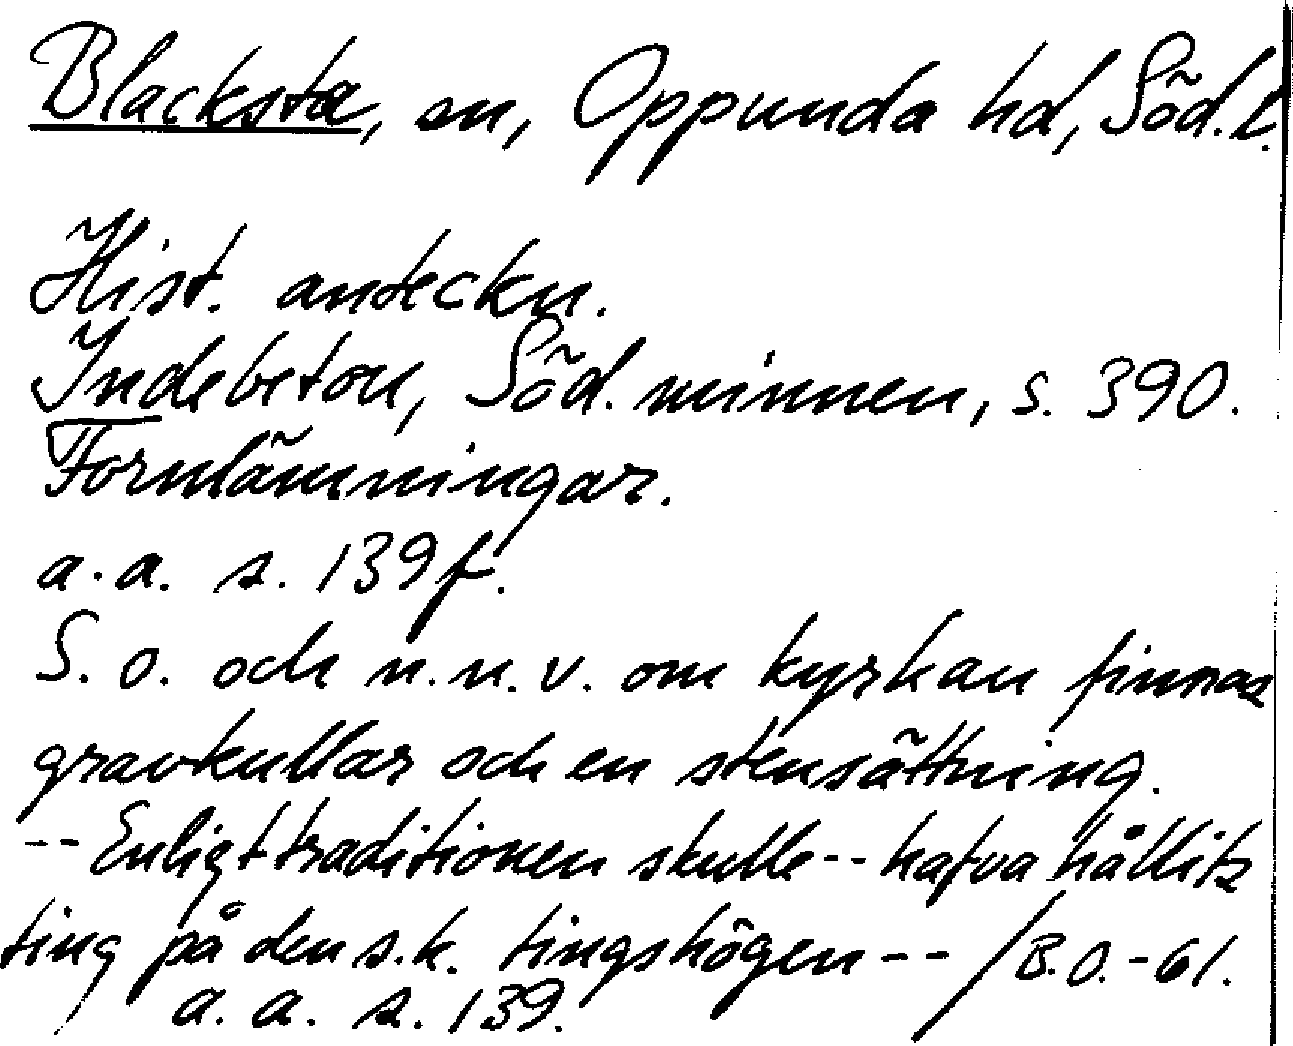 Blacksta, sn, Oppunda hd, Söd. l.
Hist. anteckn.
Indebetou, Söd. minnen, s. 390.
Fornlämningar.
a.a. s. 139 f.
S. o. och n. n. v. om kyrkan finnas
gravkullar och en stensättning.
-- Enligt traditionen skulle -- hafva hållits
ting på den s.k. tingshögen -- /B.O. -61.
a. a. s. 139.